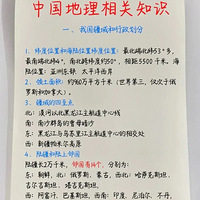 中国地理相关知识
一、我国疆域和行政划分
1、纬度位置和海陆位置纬度位置: 最北端北纬53°多,
最南端北纬4°, 南北跨纬约50°, 相距5500千米。海
陆位置: 亚洲东部、太平洋西岸
2、领土面积: 约960万平方千米 (世界第三, 仅次于俄
罗斯和加拿大)。
3、疆域的四至点
北: 漠河以北黑龙江主航道中心线
南: 南沙群岛的曾母暗沙
东: 黑龙江与乌苏里江主航道中心线的相交处
西: 新疆帕米尔高原
4、陆疆和陆上邻国
陆疆长2万千米, 邻国有14个, 分别为:
东: 朝鲜, 北: 俄罗斯、蒙古, 西北: 哈萨克斯坦、
吉尔吉斯坦、塔吉克斯坦,
西: 阿富汗、巴基斯坦, 西南: 印度、尼泊尔、不丹,